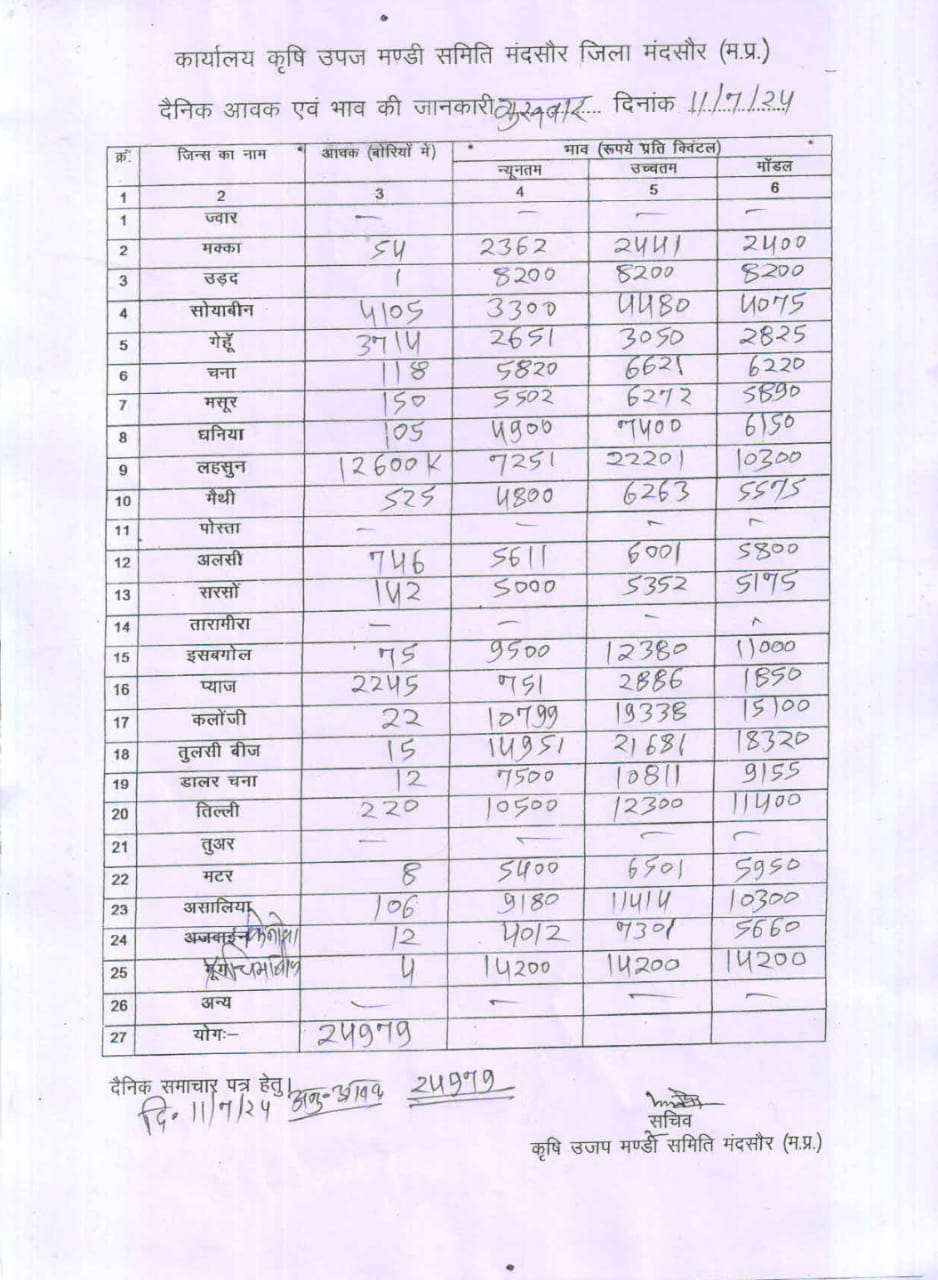 कार्यालय कृषि उपज मण्डी समिति मंदसौर जिला मंदसौर (म.प्र.)
दैनिक आवक एवं भाव की जानकारी गुरूवार दिनांक 11/7/24
क्रं. जिन्स का नाम आवक (बोरियों में) भाव (रूपये प्रति क्विंटल)
न्यूनतम उच्चतम मॉडल
1 2 3 4 5 6
1 ज्वार — — — —
2 मक्का 54 2362 2441 2400
3 उड़द 1 8200 8200 8200
4 सोयाबीन 4105 3300 4480 4075
5 गेहूॅ 3714 2651 3050 2825
6 चना 118 5820 6621 6220
7 मसूर 150 5502 6272 5890
8 धनिया 105 4900 7400 6150
9 लहसुन 12600 K 7251 22201 10300
10 मैथी 525 4800 6263 5575
11 पोस्ता — — — —
12 अलसी 746 5611 6001 5800
13 सरसों 142 5000 5352 5175
14 तारामीरा — — — —
15 इसबगोल 75 9500 12380 11000
16 प्याज 2245 751 2886 1850
17 कलोंजी 22 10799 19338 15100
18 तुलसी बीज 15 14951 21681 18320
19 डालर चना 12 7500 10811 9155
20 तिल्ली 220 10500 12300 11400
21 तुअर — — — —
22 मटर 8 5400 6501 5950
23 असालिया 106 9180 11414 10300
24 अजवाईन 12 4012 7301 5660
25 4 14200 14200 14200
26 अन्य — — — —
27 योगः– 24979
दैनिक समाचार पत्र हेतु।
दि. 11/7/24 अनु-आवक 24979
सचिव
कृषि उजप मण्डी समिति मंदसौर (म.प्र.)